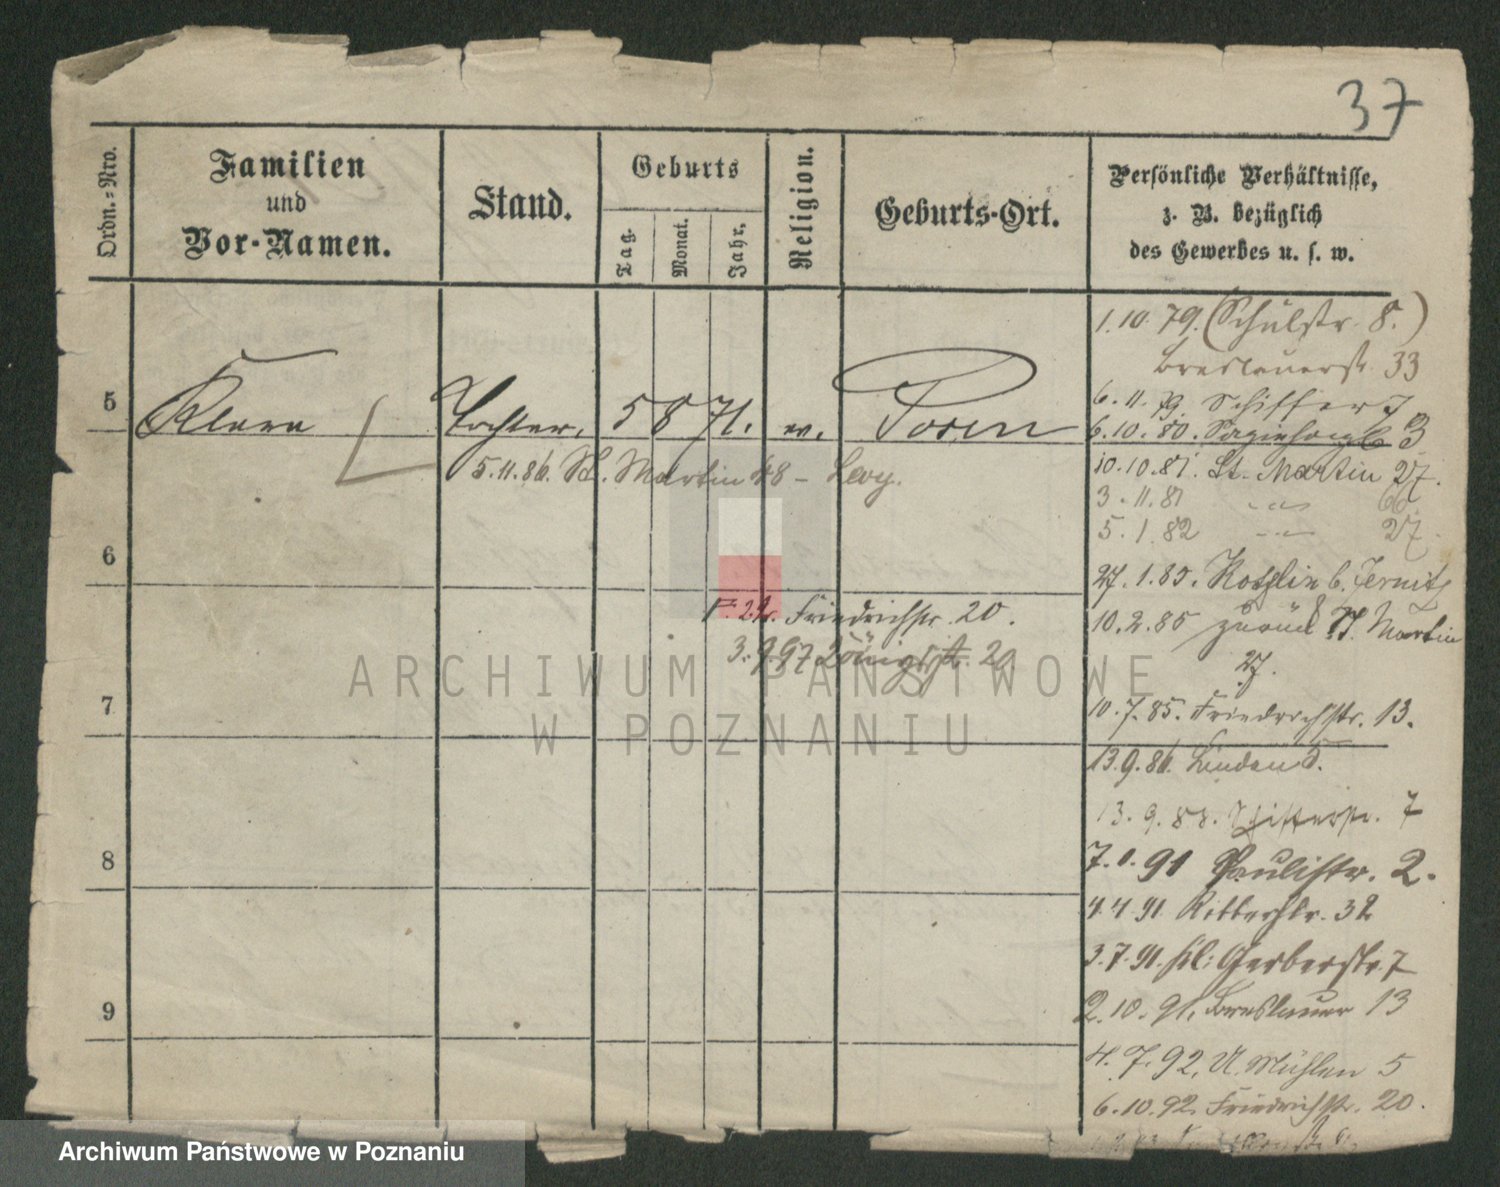 37
Ordn.-Nro.
Familien
und
Vor-Namen.
Stand.
Geburts
Tag.
Monat.
Jahr.
Religion.
Geburts-Ort.
Persönliche Verhältnisse,
z. B. bezüglich
des Gewerbes u. s. w.
1.10.79. (Schulstr. 8.)
Breslauerst. 33
5 Klara Tochter. 5 8 71. ev. Posen
6.11.79. Schifferst 7
6.10.80. 3
5.11.86. St. Martin 48 - Levy.
10.10.81. St. Martin 27.
3.11.81 " 60.
5.1.82 " 27.
6
27.1.85. b. Jersitz
F. 2.2. Friedrichstr. 20.
10.2.85 zurück St. Martin
27.
3.9.97 Königsstr. 20
7
10.7.85. Friedrichstr. 13.
13.9.86. Linden 5.
13.9.88. Schifferstr. 7
8
7.1.91 Paulistr. 2.
4.4.91. Ritterstr. 32
3.7.91. kl: Gerberstr. 7
9
2.10.91. Breslauer 13
4.7.92. U. Mühlen 5
6.10.92. Friedrichstr. 20.
ARCHIWUM PAŃSTWOWE
W POZNANIU
Archiwum Państwowe w Poznaniu